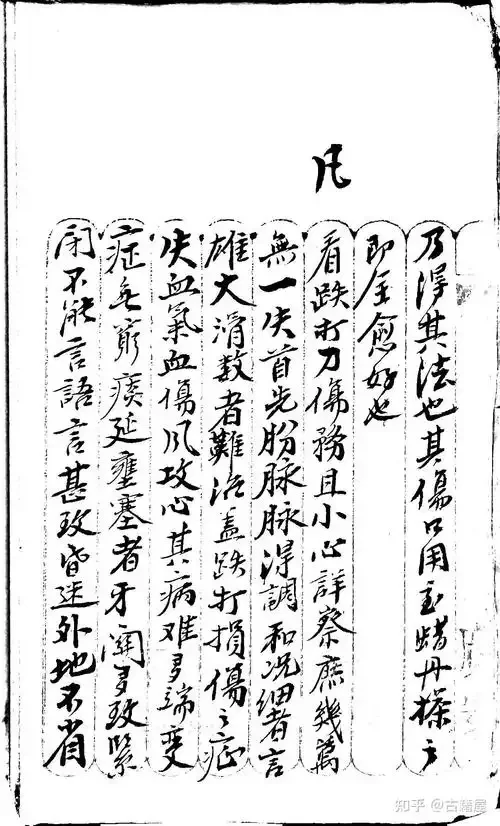 乃得其法也其傷口用玉蜡丹搽之
即全愈好也
凡
看跌打刀傷務且小心詳察庶幾萬
無一失首先盼脉脉得調和况細者言
雄大滑数者難治盖跌打損傷之症
失血氣血傷風攻心其病难多端变
症無窮痰延壅塞者牙関多致緊
闭不能言語言甚致昏迷外地不省
知乎 @古籍屋